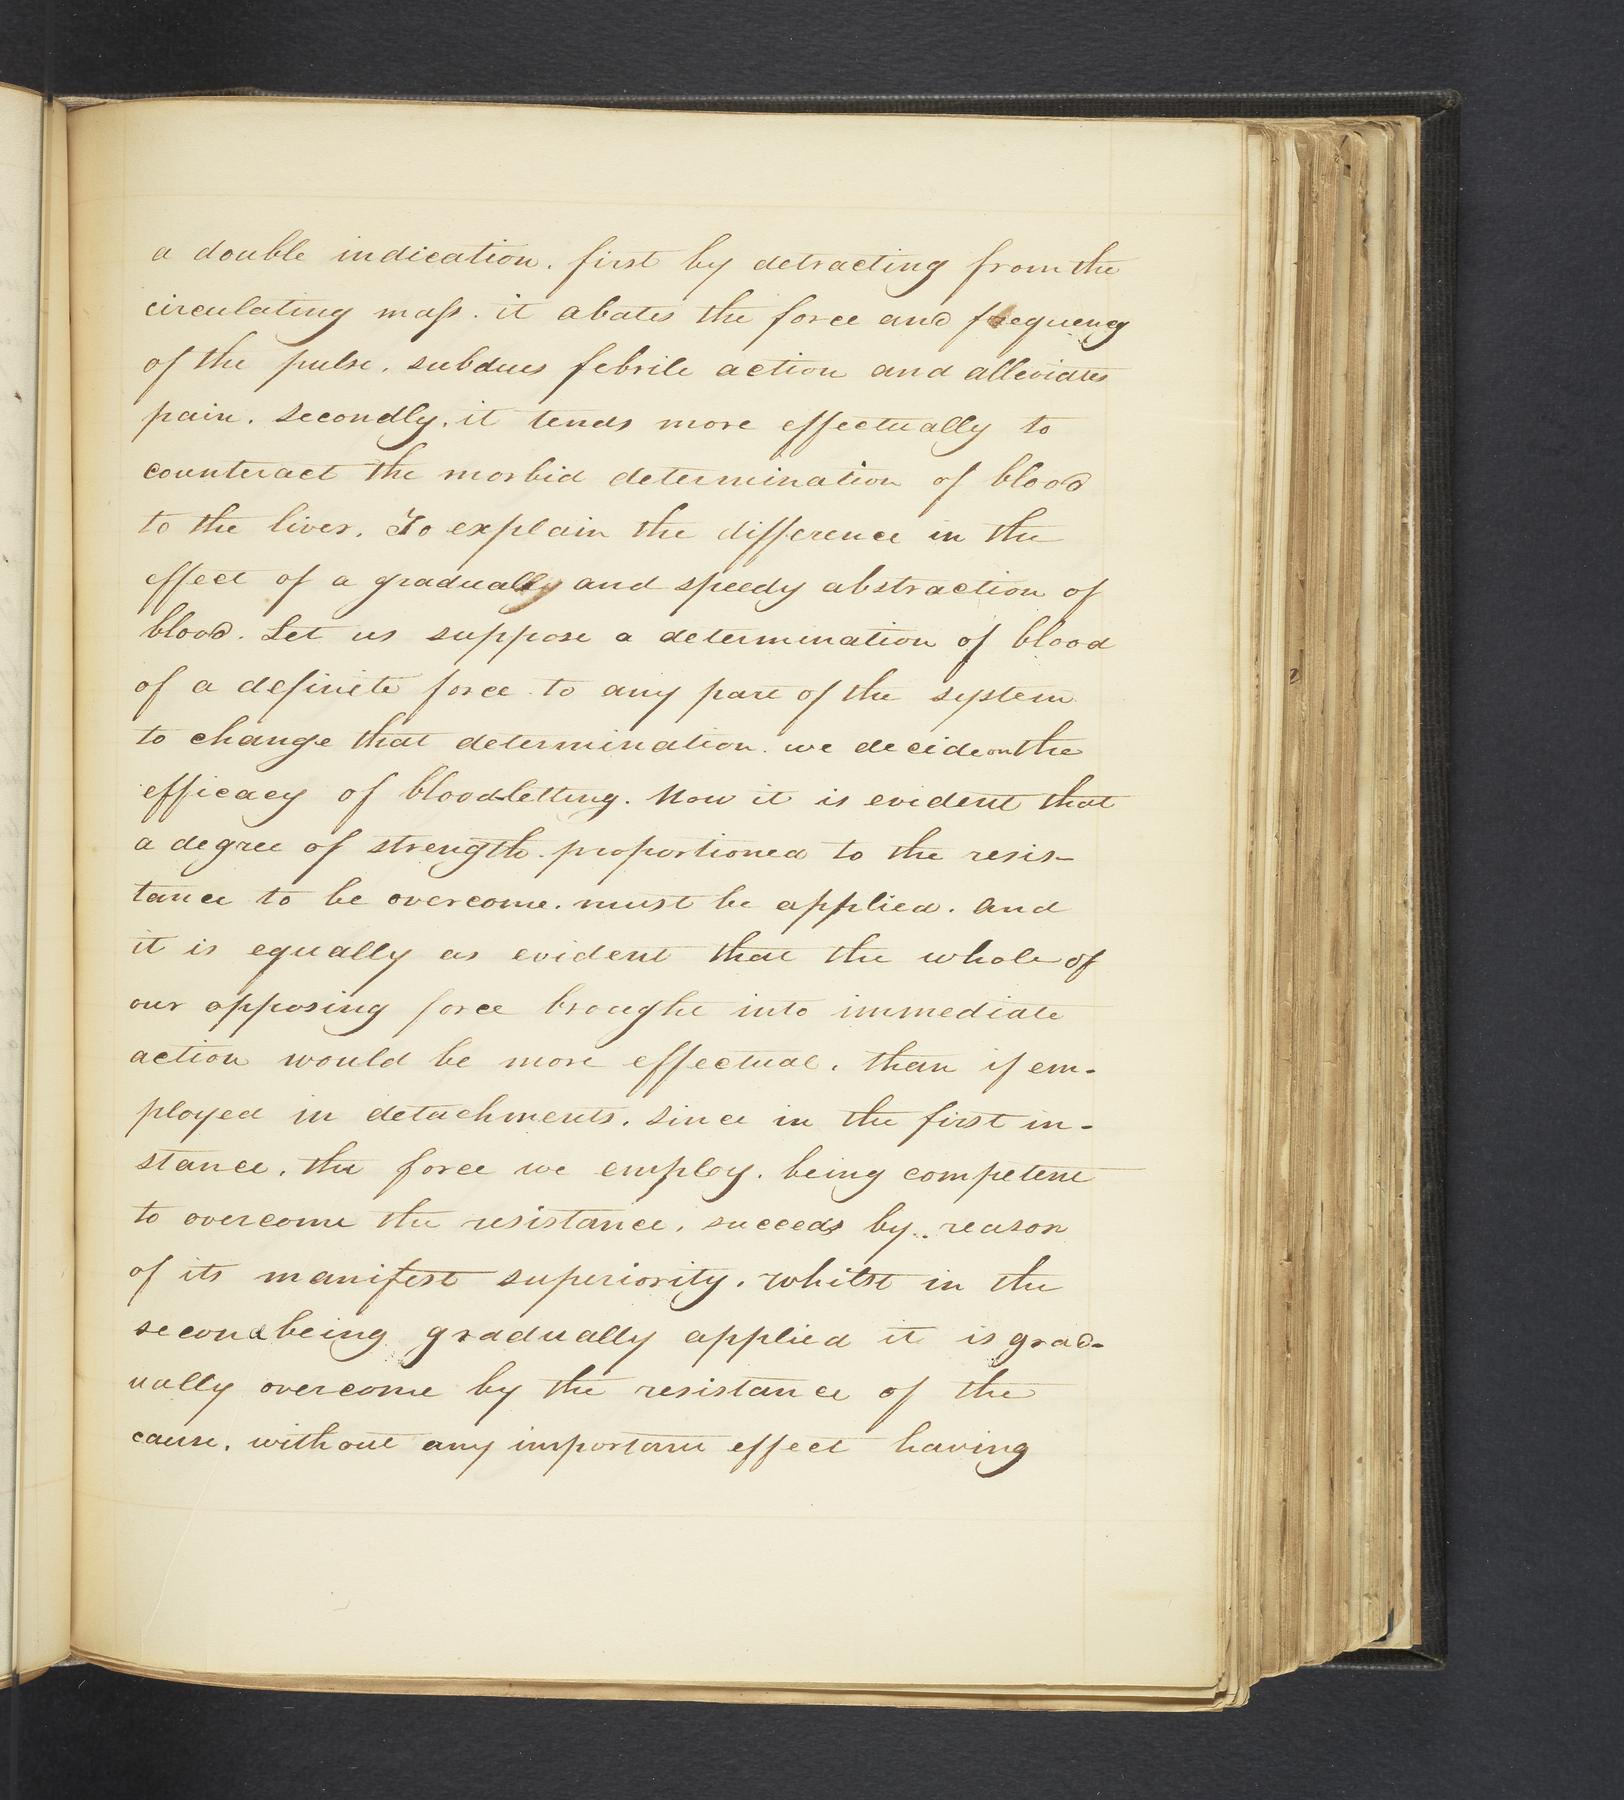 a double indication. first by detracting from the
circulating maſs. it abates the force and frequency
of the pulse. subdues febrile action and alleviates
pain. Secondly. it tends more effectually to
counteract the morbid determination of blood
to the liver. To explain the difference in the
effect of a gradually and speedy abstraction of
blood. Let us suppose a determination of blood
of a definite force to any part of the system
to change that determination. we decide on the
efficacy of bloodletting. Now it is evident that
a degree of strength. proportioned to the resis-
tance to be overcome. must be applied. and
it is equally as evident that the whole of
our opposing force brought into immediate
action would be more effectual. than if em-
ployed in detachments. Since in the first in-
stance. the force we employ. being competent
to overcome the resistance. succeeds by.. reason
of its manifest superiority. whilst in the
second being gradually applied it is grad-
ually overcome by the resistance of the
cause. without any important effect having